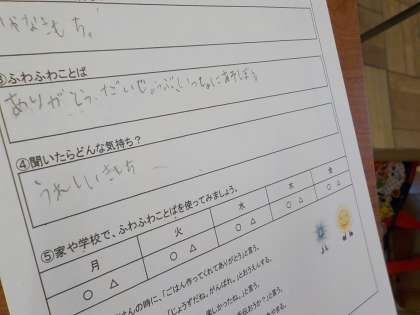 なきもち。
③ふわふわことば
ありがとう、だいじょうぶ、いっしょにあそぼう
④聞いたらどんな気持ち？
うれしいきもち
⑤家や学校で、ふわふわことばを使ってみましょう。
月 火 水 木 金
○ △ ○ △ ○ △ ○ △ ○ △
はんの時に、「ごはん作ってくれてありがとう」と言う。
「じょうずだね。がんばれ。」とおうえんする。
楽しかったね。」と言う。